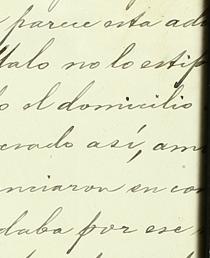 parece esta ad
talo no lo estip
o el domicilio
erado así, am
nciaron en con
daba por ese